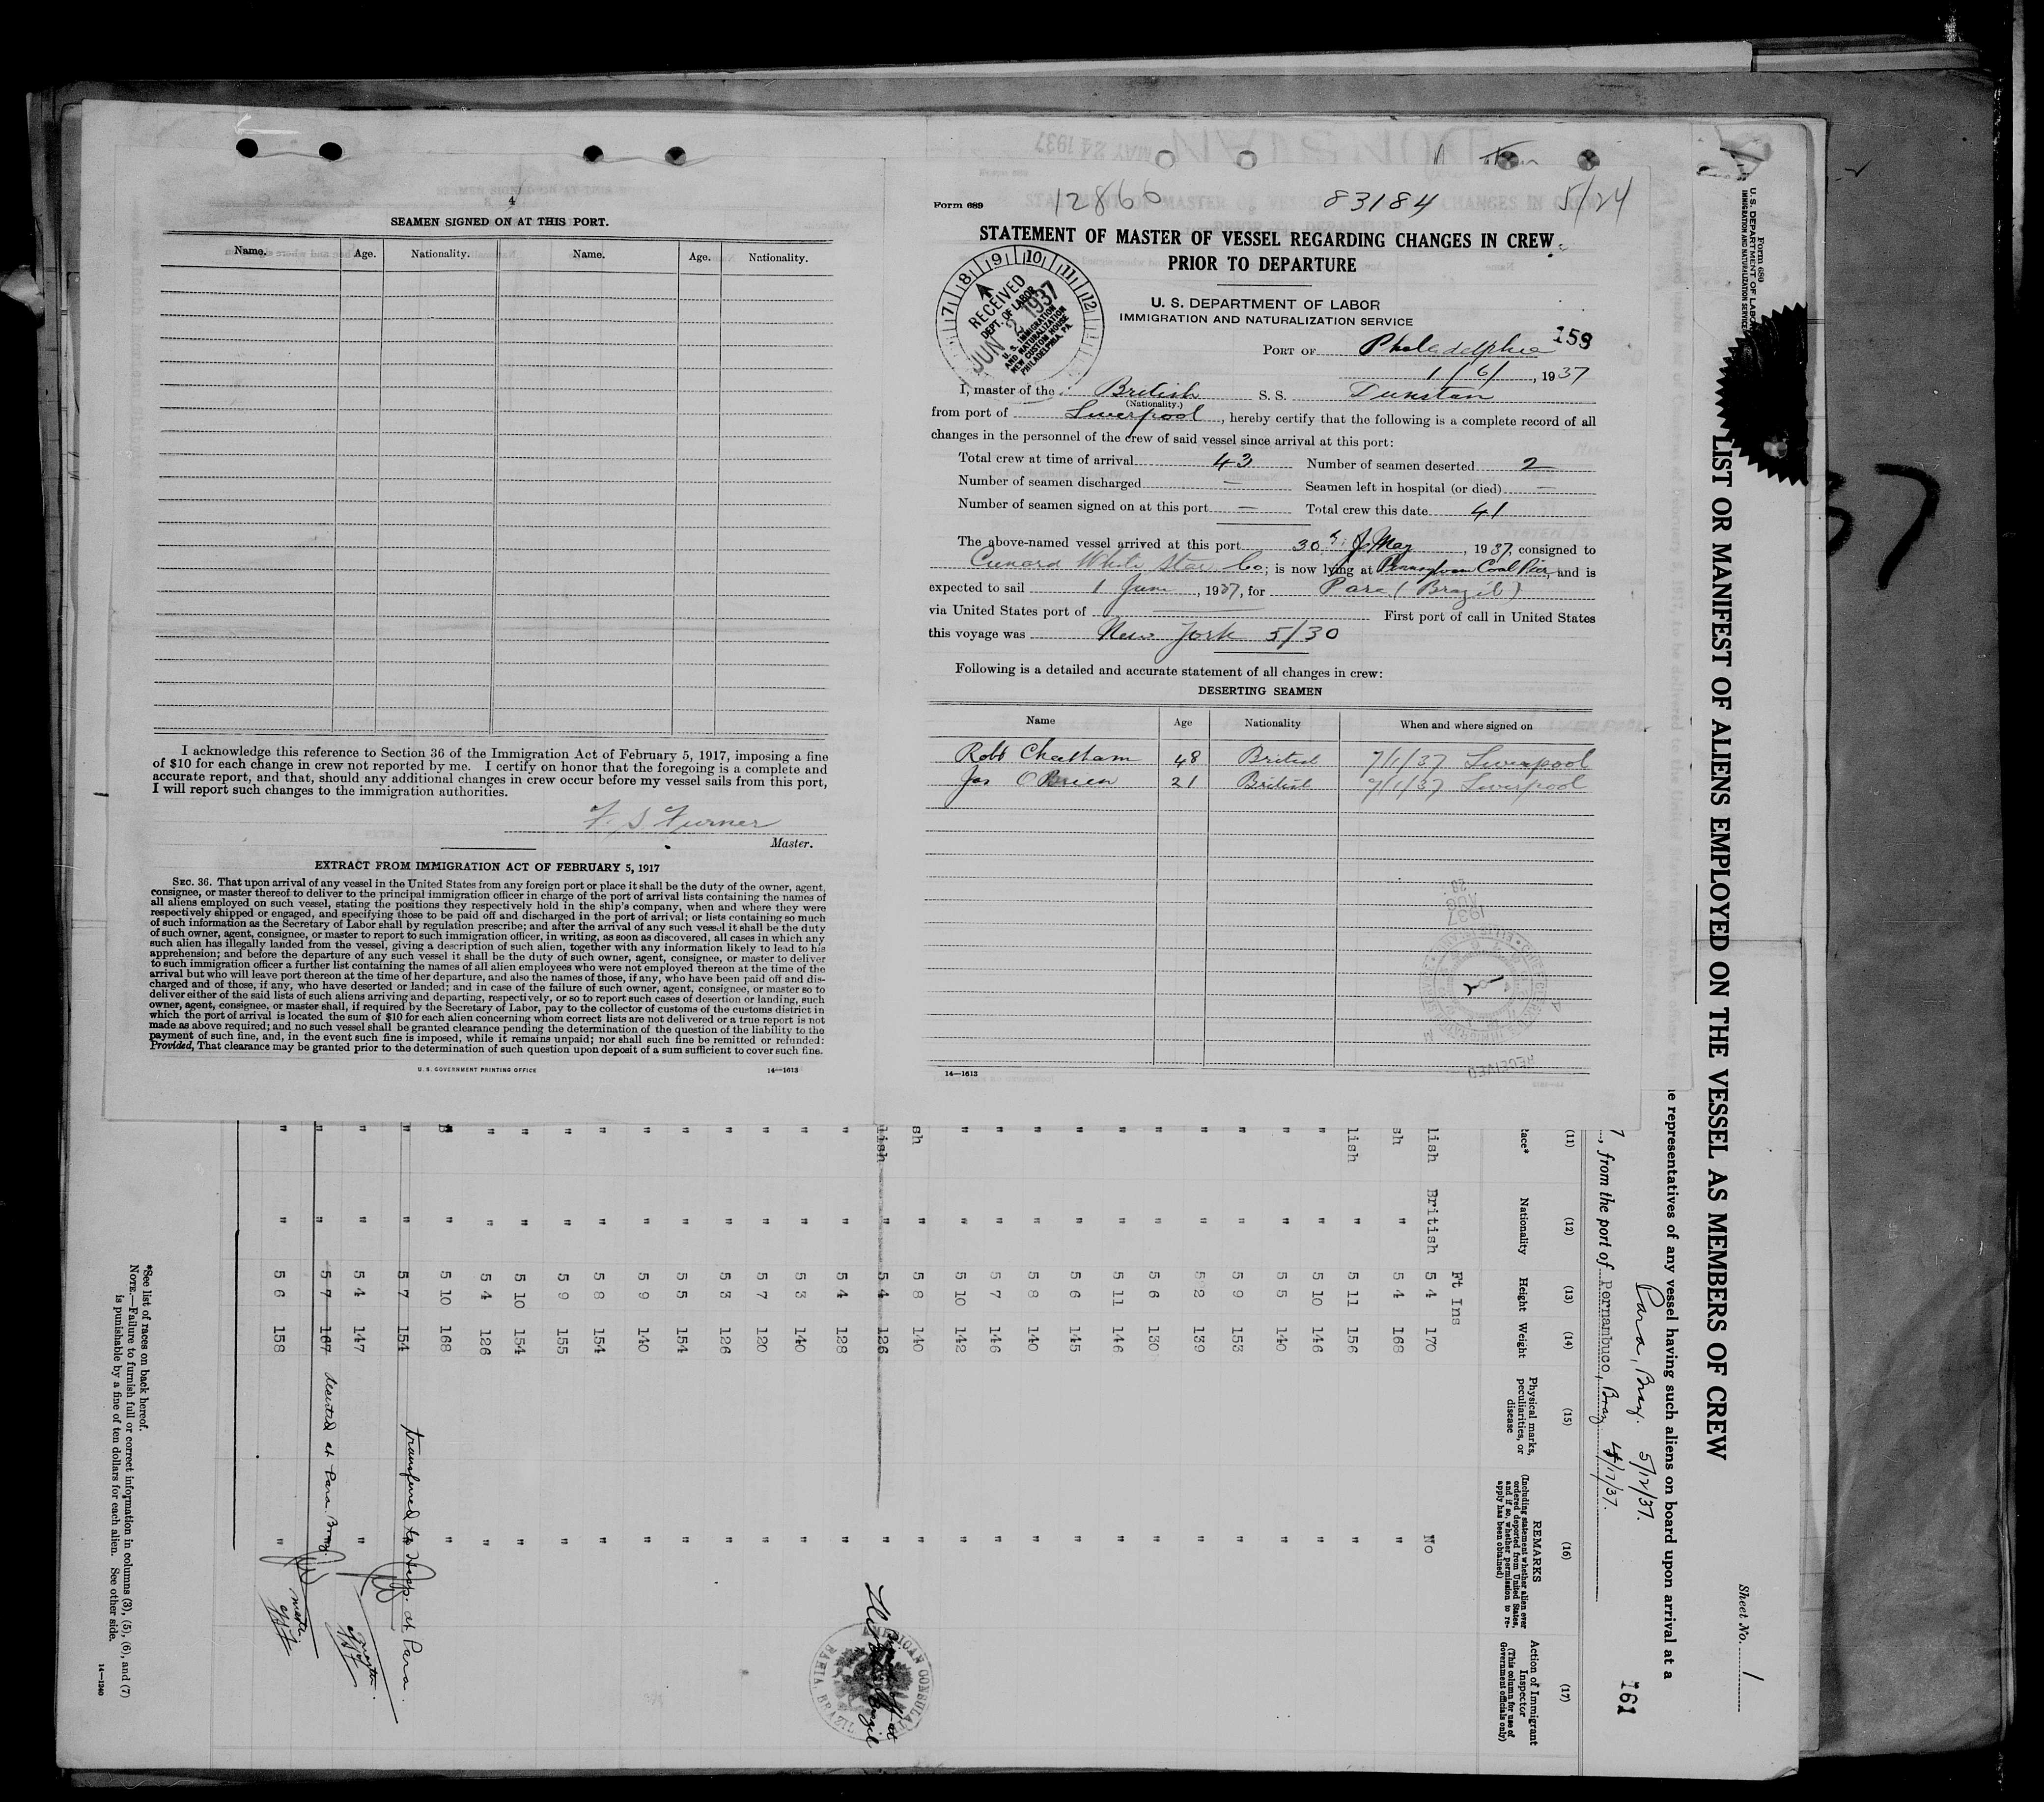 4
SEAMEN SIGNED ON AT THIS PORT.
Name. Age. Nationality. Name. Age. Nationality.
I acknowledge this reference to Section 36 of the Immigration Act of February 5, 1917, imposing a fine
of $10 for each change in crew not reported by me. I certify on honor that the foregoing is a complete and
accurate report, and that, should any additional changes in crew occur before my vessel sails from this port,
I will report such changes to the immigration authorities.
Master.
EXTRACT FROM IMMIGRATION ACT OF FEBRUARY 5, 1917
SEC. 36. That upon arrival of any vessel in the United States from any foreign port or place it shall be the duty of the owner, agent,
consignee, or master thereof to deliver to the principal immigration officer in charge of the port of arrival lists containing the names of
all aliens employed on such vessel, stating the positions they respectively hold in the ship's company, when and where they were
respectively shipped or engaged, and specifying those to be paid off and discharged in the port of arrival; or lists containing so much
of such information as the Secretary of Labor shall by regulation prescribe; and after the arrival of any such vessel it shall be the duty
of such owner, agent, consignee, or master to report to such immigration officer, in writing, as soon as discovered, all cases in which any
such alien has illegally landed from the vessel, giving a description of such alien, together with any information likely to lead to his
apprehension; and before the departure of any such vessel it shall be the duty of such owner, agent, consignee, or master to deliver
to such immigration officer a further list containing the names of all alien employees who were not employed thereon at the time of the
arrival but who will leave port thereon at the time of her departure, and also the names of those, if any, who have been paid off and dis-
charged and of those, if any, who have deserted or landed; and in case of the failure of such owner, agent, consignee, or master so to
deliver either of the said lists of such aliens arriving and departing, respectively, or so to report such cases of desertion or landing, such
owner, agent, consignee, or master shall, if required by the Secretary of Labor, pay to the collector of customs of the customs district in
which the port of arrival is located the sum of $10 for each alien concerning whom correct lists are not delivered or a true report is not
made as above required; and no such vessel shall be granted clearance pending the determination of the question of the liability to the
payment of such fine, and, in the event such fine is imposed, while it remains unpaid; nor shall such fine be remitted or refunded:
Provided, That clearance may be granted prior to the determination of such question upon deposit of a sum sufficient to cover such fine.
U. S. GOVERNMENT PRINTING OFFICE 14—1613
Form 689 12866 83184 5/24
STATEMENT OF MASTER OF VESSEL REGARDING CHANGES IN CREW
PRIOR TO DEPARTURE
7 8 9 10 11 12
RECEIVED
DEPT. OF LABOR
JUN 2 1937
U. S. IMMIGRATION
AND NATURALIZATION
NEW CUSTOM HOUSE
PHILADELPHIA, PA.
U. S. DEPARTMENT OF LABOR
IMMIGRATION AND NATURALIZATION SERVICE
PORT OF Philadelphia 159
1/6/, 1937
I, master of the British S. S. Dunstan
(Nationality.)
from port of Liverpool, hereby certify that the following is a complete record of all
changes in the personnel of the crew of said vessel since arrival at this port:
Total crew at time of arrival 43 Number of seamen deserted 2
Number of seamen discharged — Seamen left in hospital (or died) —
Number of seamen signed on at this port — Total crew this date 41
The above-named vessel arrived at this port 30th of May, 1937, consigned to
Cunard White Star Co; is now lying at Pennsylvania Coal Pier, and is
expected to sail 1 June, 1937, for Para (Brazil)
via United States port of First port of call in United States
this voyage was New York 5/30
Following is a detailed and accurate statement of all changes in crew:
DESERTING SEAMEN
Name Age Nationality When and where signed on
Robt Cheetham 48 British 7/1/37 Liverpool
Jas O'Brien 21 British 7/1/37 Liverpool
14—1613
Form 689
U. S. DEPARTMENT OF LABOR
IMMIGRATION AND NATURALIZATION SERVICE
LIST OR MANIFEST OF ALIENS EMPLOYED ON THE VESSEL AS MEMBERS OF CREW
Sheet No. 1
representatives of any vessel having such aliens on board upon arrival at a
Para, Braz. 5/12/37.
, from the port of Pernambuco, Braz 4/17/37.
161
(11) (12) (13) (14) (15) (16) (17)
Nationality Height Weight Physical marks, peculiarities, or disease
REMARKS
(Including statement whether alien ever ordered deported from United States, and if so, whether permission to reapply has been obtained)
Action of Immigrant Inspector
(This column for use of Government officials only)
Ft Ins
lish British 5 4 170 No
sh " 5 4 168 "
lish " 5 11 156 "
" " 5 10 146 "
" " 5 5 140 "
" " 5 9 153 "
" " 5 2 139 "
" " 5 6 130 "
" " 5 11 146 "
" " 5 6 145 "
" " 5 8 140 "
" " 5 7 146 "
" " 5 10 142 "
sh " 5 8 140 "
lish " 5 4 126 "
" " 5 4 128 "
" " 5 3 140 "
" " 5 7 120 "
" " 5 3 126 "
" " 5 5 154 "
" " 5 9 140 "
" " 5 8 154 "
" " 5 9 155 "
" " 5 10 154 "
" " 5 4 126 "
" " 5 10 168 "
" " 5 7 154 transferred to Hosp. at Para.
" " 5 4 147 "
" " 5 7 167 deserted at Para. Braz.
" " 5 6 158 "
*See list of races on back hereof.
NOTE.—Failure to furnish full or correct information in columns (3), (5), (6), and (7)
is punishable by a fine of ten dollars for each alien. See other side.
14—1240